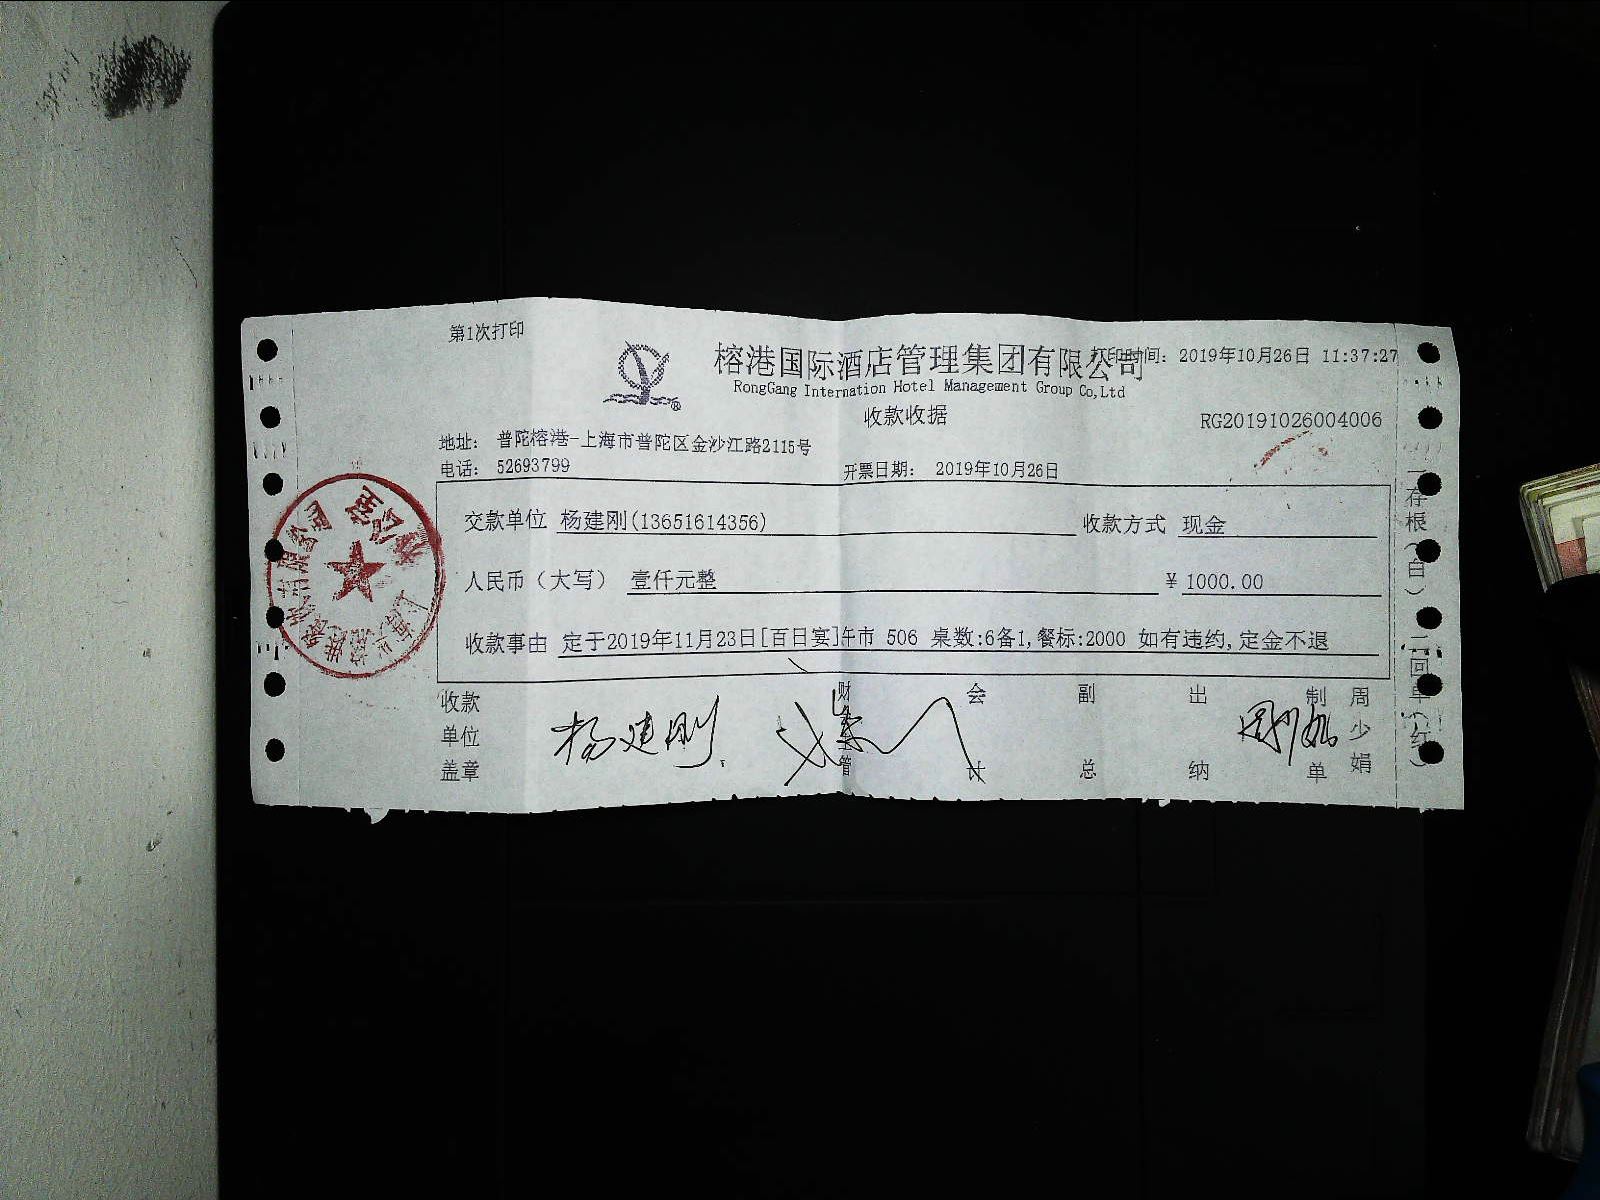 第1次打印
榕港国际酒店管理集团有限公司
打印时间: 2019年10月26日 11:37:27
RongGang Internation Hotel Management Group Co,Ltd
收款收据
RG20191026004006
地址: 普陀榕港-上海市普陀区金沙江路2115号
电话: 52693799
开票日期: 2019年10月26日
交款单位 杨建刚(13651614356) 收款方式 现金
人民币（大写） 壹仟元整 ¥ 1000.00
收款事由 定于2019年11月23日[百日宴]午市 506 桌数:6备1,餐标:2000 如有违约,定金不退
收款单位盖章
杨建刚
财务主管
会计
副总
出纳
制单
周少娟
一存根(白) 二回单(红)